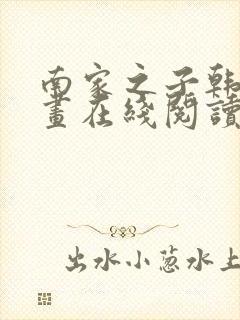 南家之子韩
画在线阅读
出水小葱水上